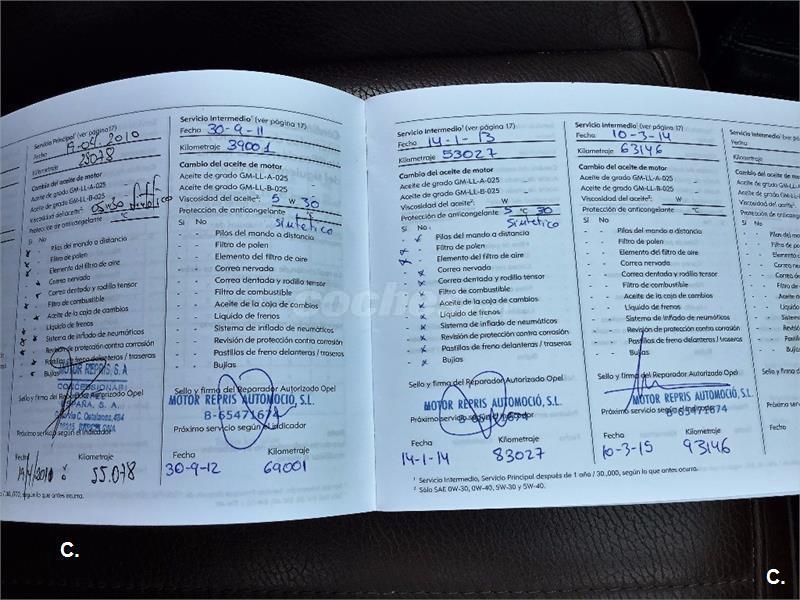 Servicio Principal¹ (ver página 17)
Fecha 19-04-2010
Kilometraje 25078
Cambio del aceite de motor
Aceite de grado GM-LL-A-025
Aceite de grado GM-LL-B-025
Viscosidad del aceite²:
Protección de anticongelante °C
Sí No
Pilas del mando a distancia
Filtro de polen
Elemento del filtro de aire
Correa nervada
Correa dentada y rodillo tensor
Filtro de combustible
Aceite de la caja de cambios
Líquido de frenos
Sistema de inflado de neumáticos
Revisión de protección contra corrosión
Pastillas de freno delanteras / traseras
Bujías
MOTOR REPRIS, S.A
CONCESIONARI
Sello y firma del Reparador Autorizado Opel
ESPAÑA, S. A.
Próximo servicio según el indicador
BARCELONA
Fecha Kilometraje
19/4/2011 55.078
/ 30.000, según lo que antes ocurra.
Servicio Intermedio¹ (ver página 17)
Fecha 30-9-11
Kilometraje 39001
Cambio del aceite de motor
Aceite de grado GM-LL-A-025
Aceite de grado GM-LL-B-025
Viscosidad del aceite²: 5 W 30
Protección de anticongelante °C
Sintetico
Sí No
- - Pilas del mando a distancia
- - Filtro de polen
- - Elemento del filtro de aire
- - Correa nervada
- - Correa dentada y rodillo tensor
- - Filtro de combustible
- - Aceite de la caja de cambios
- - Líquido de frenos
- - Sistema de inflado de neumáticos
- - Revisión de protección contra corrosión
- - Pastillas de freno delanteras / traseras
- - Bujías
Sello y firma del Reparador Autorizado Opel
MOTOR REPRIS AUTOMOCIÓ, S.L.
B-65471674
Próximo servicio según el indicador
Fecha Kilometraje
30-9-12 69001
Servicio Intermedio¹ (ver página 17)
Fecha 14-1-13
Kilometraje 53027
Cambio del aceite de motor
Aceite de grado GM-LL-A-025 -
Aceite de grado GM-LL-B-025 -
Viscosidad del aceite²: W
Protección de anticongelante 5 °C 30
Sintetico
Sí No
Pilas del mando a distancia
Filtro de polen
Elemento del filtro de aire
Correa nervada
Correa dentada y rodillo tensor
Filtro de combustible
Aceite de la caja de cambios
Líquido de frenos
Sistema de inflado de neumáticos
Revisión de protección contra corrosión
Pastillas de freno delanteras / traseras
Bujías
Sello y firma del Reparador Autorizado Opel
MOTOR REPRIS AUTOMOCIÓ, S.L.
B-65471674
Próximo servicio según el indicador
Fecha Kilometraje
14-1-14 83027
¹ Servicio Intermedio, Servicio Principal después de 1 año / 30.000, según lo que antes ocurra.
² Sólo SAE 0W-30, 0W-40, 5W-30 y 5W-40.
Servicio Intermedio¹ (ver página 17)
Fecha 10-3-14
Kilometraje 63146
Cambio del aceite de motor
Aceite de grado GM-LL-A-025 -
Aceite de grado GM-LL-B-025 -
Viscosidad del aceite²: W
Protección de anticongelante °C
Sí No
- - Pilas del mando a distancia
- - Filtro de polen
- - Elemento del filtro de aire
- - Correa nervada
- - Correa dentada y rodillo tensor
- - Filtro de combustible
- - Aceite de la caja de cambios
- - Líquido de frenos
- - Sistema de inflado de neumáticos
- - Revisión de protección contra corrosión
- - Pastillas de freno delanteras / traseras
- - Bujías
Sello y firma del Reparador Autorizado Opel
MOTOR REPRIS AUTOMOCIÓ, S.L.
B-65471674
Próximo servicio según el indicador
Fecha Kilometraje
10-3-15 93146
Servicio
Fecha
Kilometraje
Cambio del
Aceite de
Aceite de
Viscosidad
Protección
Sí No
Sello y
Próximo
Fecha
C.
C.